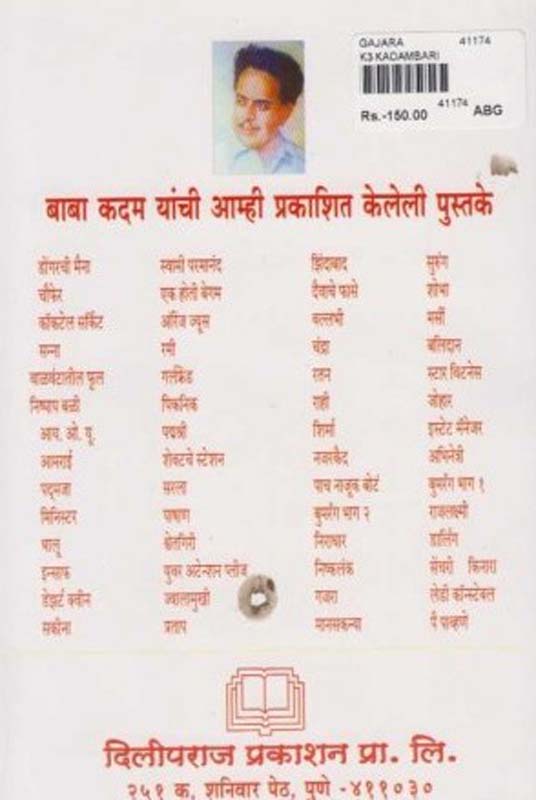 GAJARA 41174
K3 KADAMBARI
41174
Rs.-150.00 ABG
बाबा कदम यांची आम्ही प्रकाशित केलेली पुस्तके
डोंगरची मैना स्वामी परमानंद झिंदाबाद सुरुंग
चौफेर एक होती बेगम दैवाचे फासे शोभा
कॉकटेल सर्किट ऑरेंज ज्यूस वल्लभी मर्सी
सन्ना रमी चंद्रा बलिदान
वाळवंटातील फूल गर्लफ्रेंड रतन स्टार विटनेस
निष्पाप बळी पिकनिक राही जोहार
आय. ओ. यू. पद्मश्री शिर्मा इस्टेट मॅनेजर
आमराई शेवटचे स्टेशन नजरकैद अभिनेत्री
पद्मजा सरला पाच नाजूक बोटं बुमरँग भाग १
मिनिस्टर पाषाण बुमरँग भाग २ राजलक्ष्मी
भालू श्वेतगिरी निराधार डार्लिंग
इन्साफ युवर अटेन्शन प्लीज निष्कलंक सेंचरी किनारा
डेझर्ट क्वीन ज्वालामुखी गजरा लेडी कॉन्स्टेबल
सकीना प्रताप मानसकन्या पै पाव्हणे
दिलीपराज प्रकाशन प्रा. लि.
२५१ क, शनिवार पेठ, पुणे -४११०३०